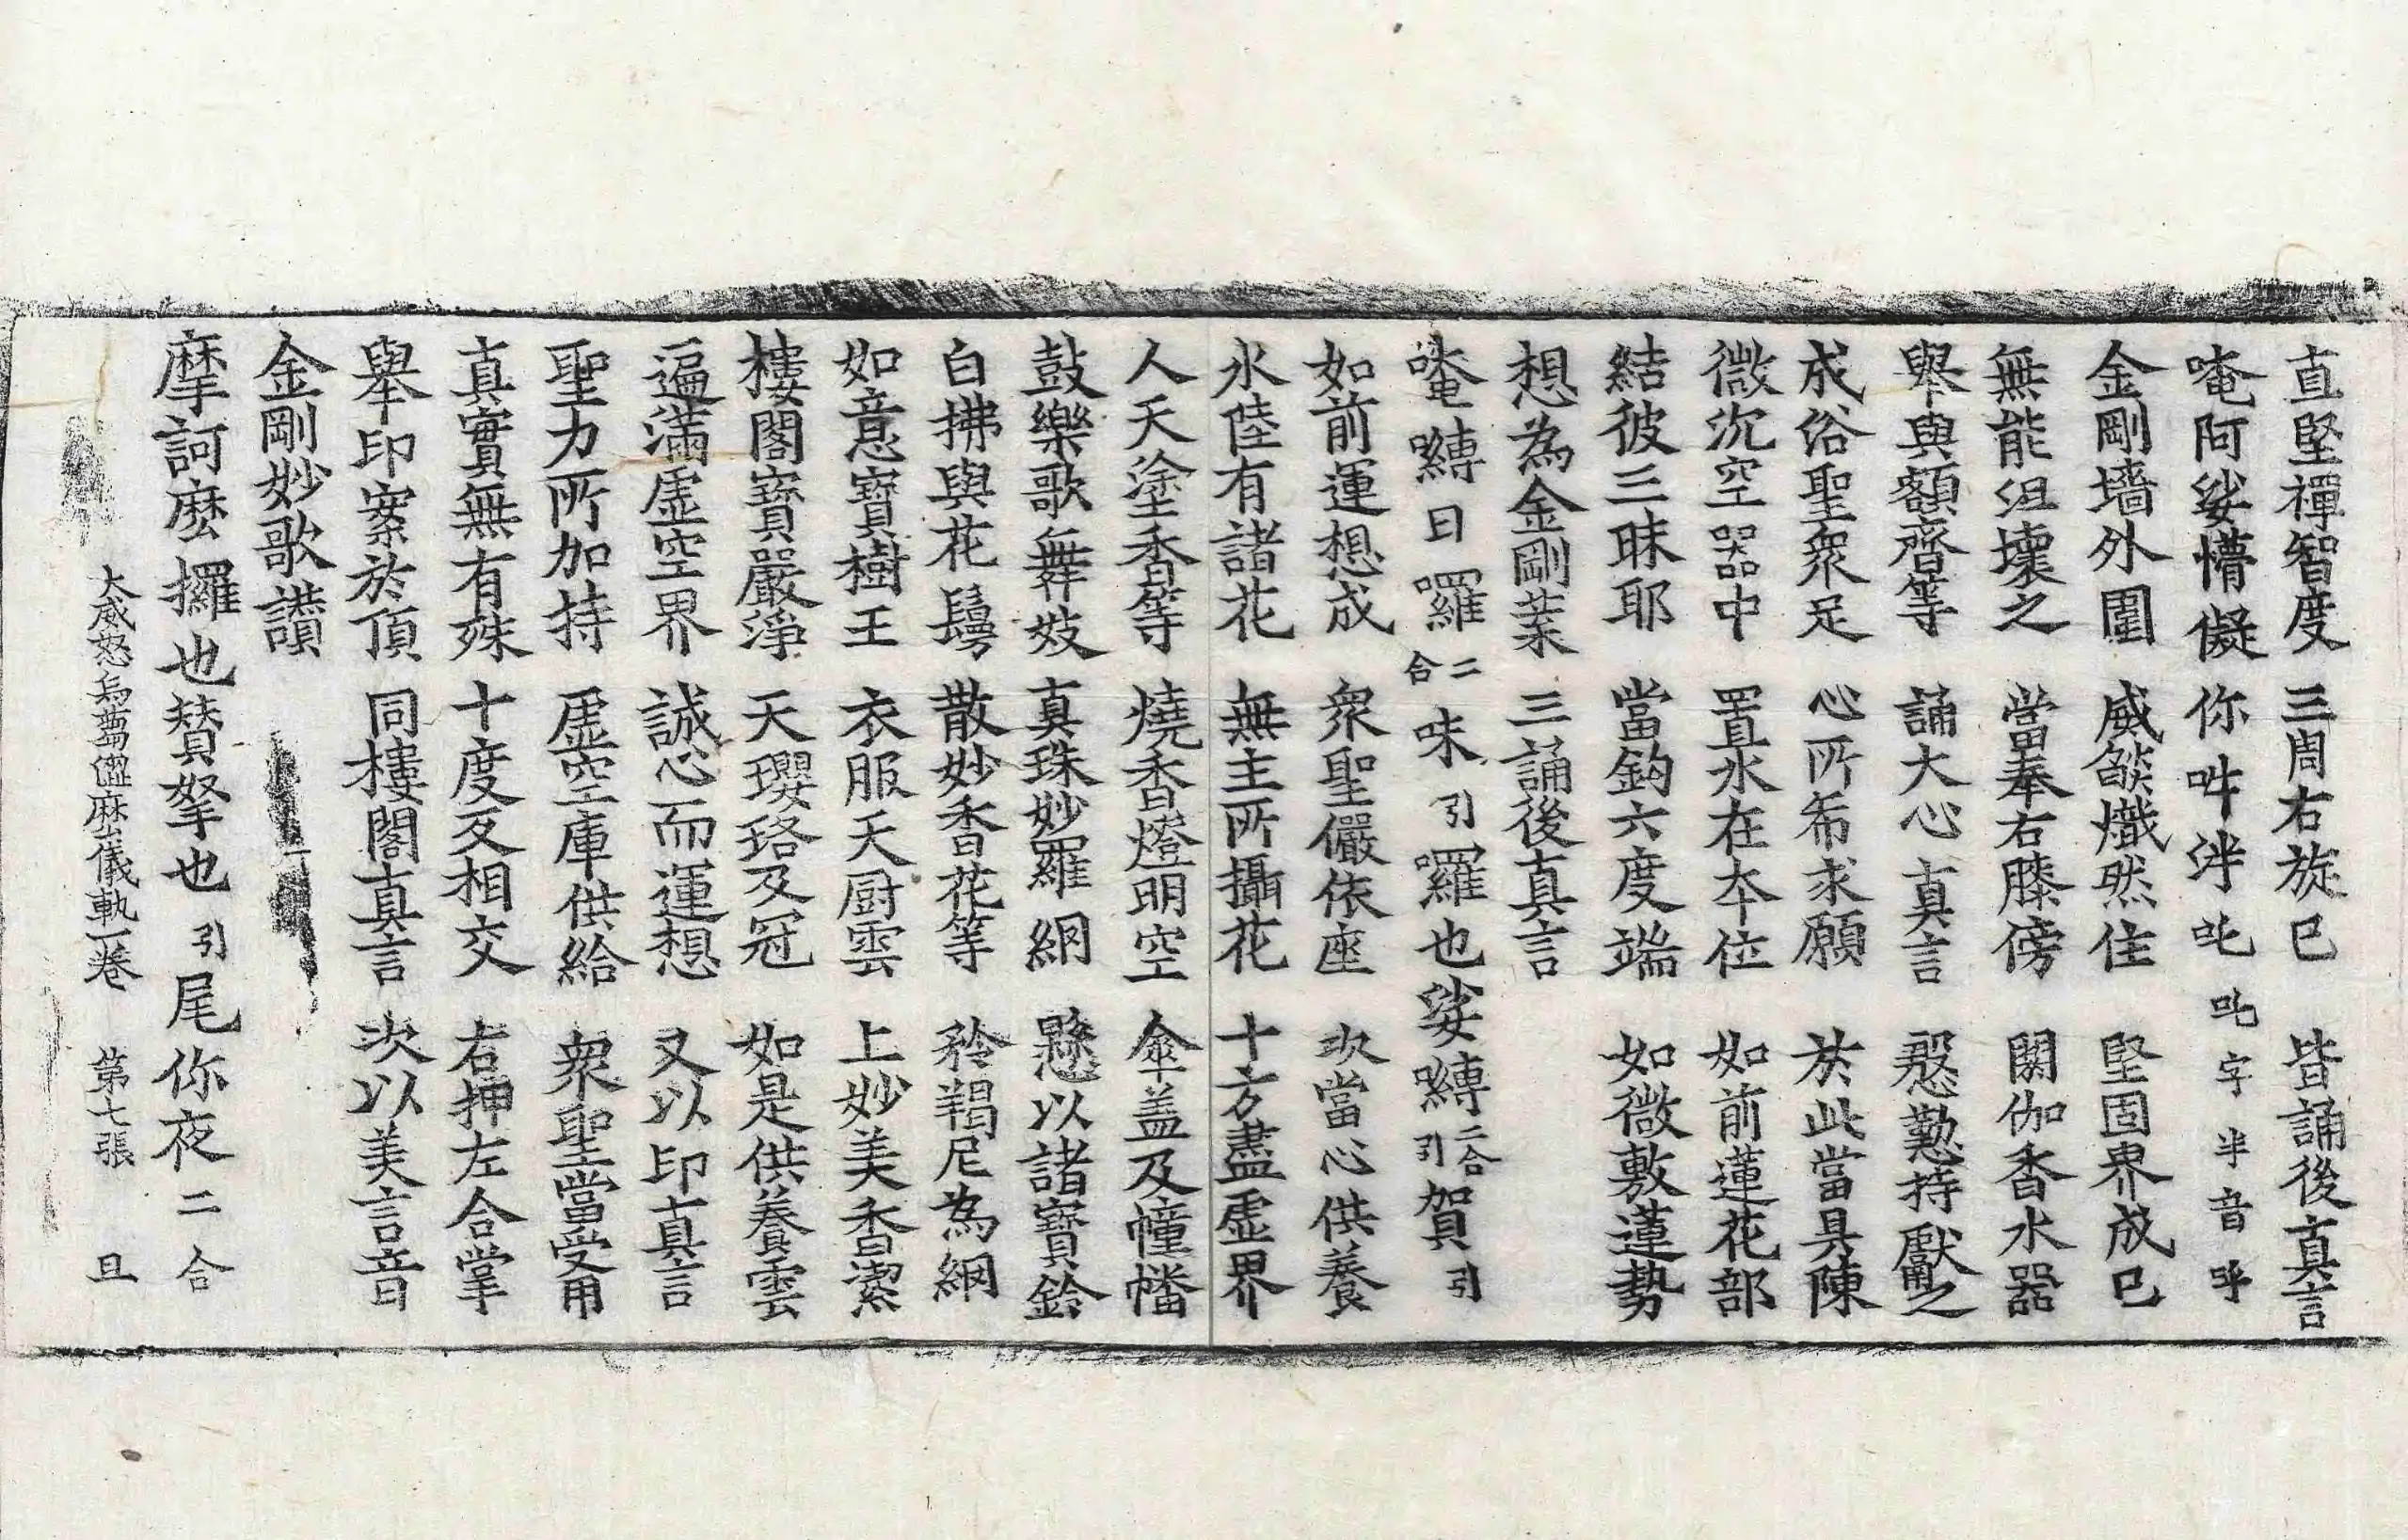 直堅禪智度 三周右旋已 皆誦後真言
唵阿娑懵儗 你吽泮吒 吒字半音呼
金剛墻外圍 威燄熾然住 堅固界成已
無能沮壞之 當奉右膝傍 閼伽香水器
舉與額齊等 誦大心真言 慇懃持獻之
成俗聖衆足 心所希求願 於此當具陳
微沉空器中 置水在本位 如前蓮花部
結彼三昧耶 當鉤六度端 如微敷蓮勢
想為金剛葉 三誦後真言
唵嚩日囉二合味引囉也娑嚩二合引賀引
如前運想成 衆聖儼依座 次當心供養
水陸有諸花 無主所攝花 十方盡虛界
人天塗香等 燒香燈明空 傘盖及幢幡
鼓樂歌舞妓 真珠妙羅網 懸以諸寶鈴
白拂與花鬘 散妙香花等 矜羯尼為網
如意寶樹王 衣服天厨雲 上妙美香潔
樓閣寶嚴淨 天瓔珞及冠 如是供養雲
遍滿虛空界 誠心而運想 又以印真言
聖力所加持 虛空庫供給 衆聖當受用
真實無有殊 十度反相交 右押左合掌
舉印案於頂 同樓閣真言 次以美言音
金剛妙歌讚
摩訶麽攞也贊拏也引尾你夜二合
大威怒烏蒭澀麽儀軌一卷 第七張 旦